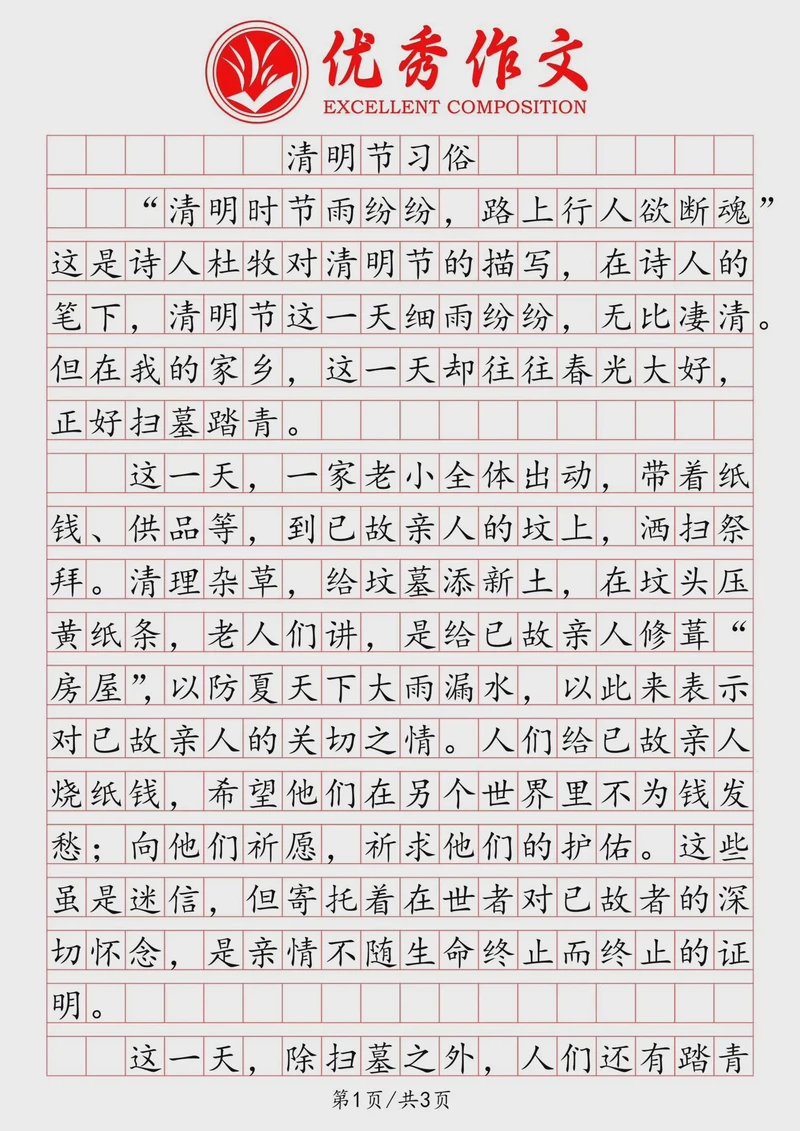 优秀作文
EXCELLENT COMPOSITION
清明节习俗
“清明时节雨纷纷，路上行人欲断魂”
这是诗人杜牧对清明节的描写，在诗人的
笔下，清明节这一天细雨纷纷，无比凄清。
但在我的家乡，这一天却往往春光大好，
正好扫墓踏青。
这一天，一家老小全体出动，带着纸
钱、供品等，到已故亲人的坟上，洒扫祭
拜。清理杂草，给坟墓添新土，在坟头压
黄纸条，老人们讲，是给已故亲人修葺“
房屋”，以防夏天下大雨漏水，以此来表示
对已故亲人的关切之情。人们给已故亲人
烧纸钱，希望他们在另个世界里不为钱发
愁；向他们祈愿，祈求他们的护佑。这些
虽是迷信，但寄托着在世者对已故者的深
切怀念，是亲情不随生命终止而终止的证
明。
这一天，除扫墓之外，人们还有踏青
第1页/共3页